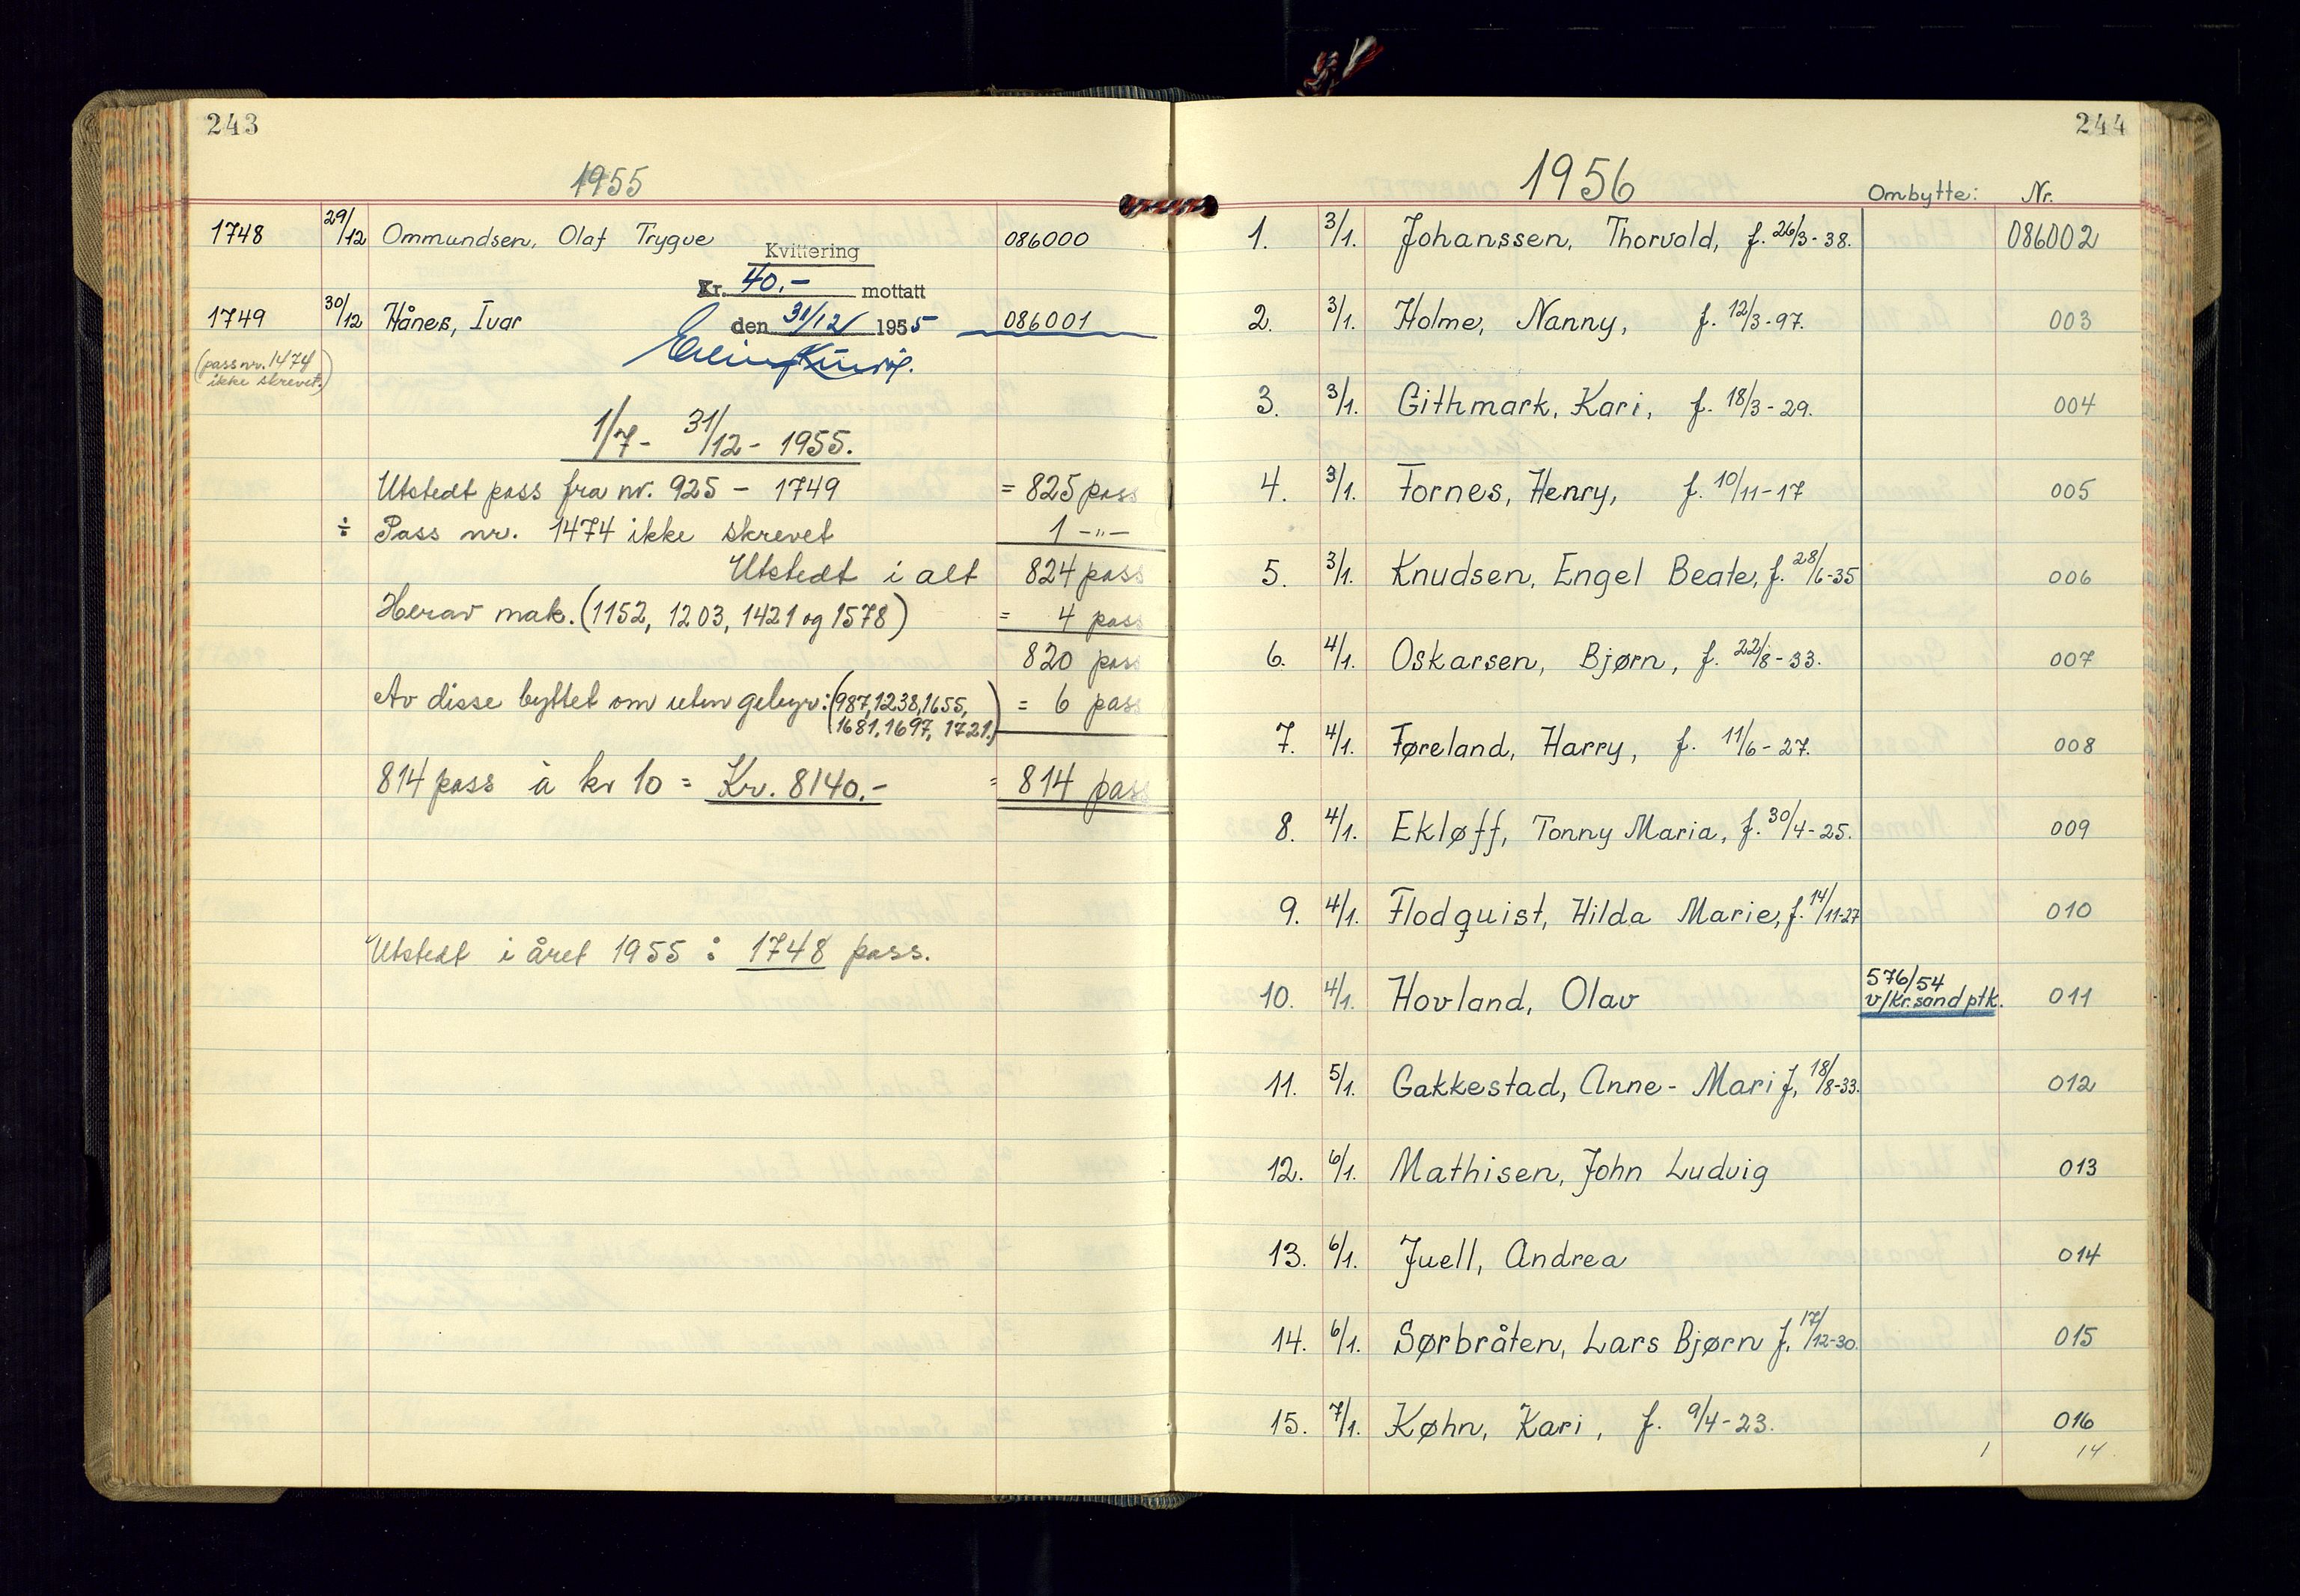 243
1955
1748 29/12 Ommundsen, Olaf Trygve 086000
Kvittering
Kr. 40.- mottatt
1749 30/12 Hånes, Ivar den 31/12 1955 086001
(pass nr. 1474
ikke skrevet.)
1/7 - 31/12 - 1955.
Utstedt pass fra nr. 925 - 1749 = 825 pass
÷ Pass nr. 1474 ikke skrevet 1 -"-
Utstedt i alt 824 pass
Herav mak. (1152, 1203, 1421 og 1578) = 4 pass
820 pass
Av disse byttet om uten gebyr: (987, 1238, 1655, = 6 pass
1681, 1697, 1721.)
814 pass à kr 10 = Kr. 8140.- = 814 pass
Utstedt i året 1955 : 1748 pass.
244
1956 Ombytte: Nr.
1. 3/1. Johanssen, Thorvald, f. 26/3-38. 086002
2. 3/1. Holme, Nanny, f. 12/3-97. 003
3. 3/1. Githmark, Kari, f. 18/3-29. 004
4. 3/1. Fornes, Henry, f. 10/11-17 005
5. 3/1. Knudsen, Engel Beate, f. 28/6-35 006
6. 4/1. Oskarsen, Bjørn, f. 22/8-33. 007
7. 4/1. Føreland, Harry, f. 11/6-27. 008
8. 4/1. Ekløff, Tonny Maria, f. 30/4-25. 009
9. 4/1. Flodquist, Hilda Marie, f. 14/11-27 010
10. 4/1. Hovland, Olav 576/54 v/Kr.sand ptk. 011
11. 5/1. Gakkestad, Anne-Mari f. 18/8-33. 012
12. 6/1. Mathisen, John Ludvig 013
13. 6/1. Juell, Andrea 014
14. 6/1. Sørbråten, Lars Bjørn f. 17/12-30. 015
15. 7/1. Køhn, Kari, f. 9/4-23. 016
1 14